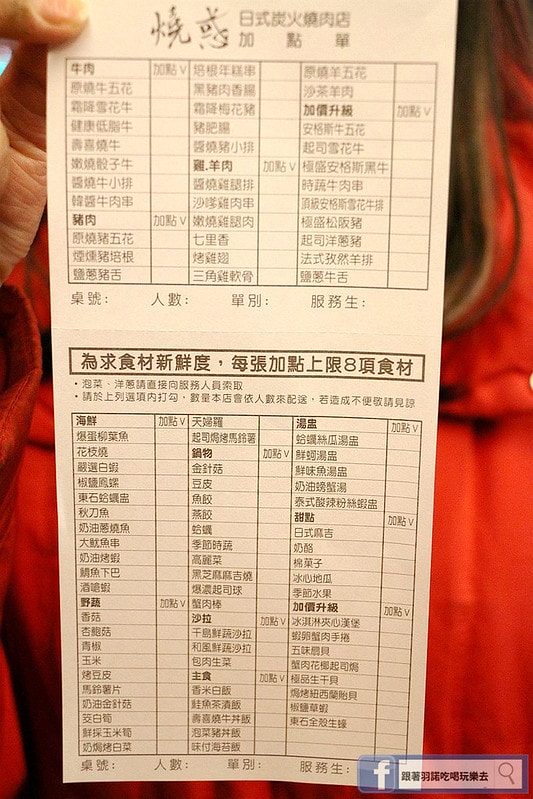 燒惑 日式炭火燒肉店
加點單
牛肉 加點∨
原燒牛五花
霜降雪花牛
健康低脂牛
壽喜燒牛
嫩燒骰子牛
醬燒牛小排
韓醬牛肉串
豬肉 加點∨
原燒豬五花
煙燻豬培根
鹽蔥豬舌
培根年糕串
黑豬肉香腸
霜降梅花豬
豬肥腸
醬燒豬小排
雞.羊肉 加點∨
醬燒雞腿排
沙嗲雞肉串
嫩燒雞腿肉
七里香
烤雞翅
三角雞軟骨
原燒羊五花
沙茶羊肉
加價升級 加點∨
安格斯牛五花
起司雪花牛
極盛安格斯黑牛
時蔬牛肉串
頂級安格斯雪花牛排
極盛松阪豬
起司洋蔥豬
法式孜然羊排
鹽蔥牛舌
桌號: 人數: 單別: 服務生:
為求食材新鮮度，每張加點上限8項食材
•泡菜、洋蔥請直接向服務人員索取
•請於上列選項內打勾，數量本店會依人數來配送，若造成不便敬請見諒
海鮮 加點∨
爆蛋柳葉魚
花枝燒
嚴選白蝦
椒鹽鳳螺
東石蛤蠣盅
秋刀魚
奶油蔥燒魚
大魷魚串
奶油烤蝦
鯛魚下巴
酒嗆蝦
野蔬 加點∨
香菇
杏鮑菇
青椒
玉米
烤豆皮
馬鈴薯片
奶油金針菇
茭白筍
鮮採玉米筍
奶焗烤白菜
天婦羅
起司焗烤馬鈴薯
鍋物 加點∨
金針菇
豆皮
魚餃
燕餃
蛤蠣
季節時蔬
高麗菜
黑芝麻麻吉燒
爆濃起司球
蟹肉棒
沙拉 加點∨
千島鮮蔬沙拉
和風鮮蔬沙拉
包肉生菜
主食 加點∨
香米白飯
鮭魚茶漬飯
壽喜燒牛丼飯
泡菜豬丼飯
味付海苔飯
湯盅 加點∨
蛤蠣絲瓜湯盅
鮮蚵湯盅
鮮味魚湯盅
奶油螃蟹湯
泰式酸辣粉絲蝦盅
甜點 加點∨
日式麻吉
奶酪
棉菓子
冰心地瓜
季節水果
加價升級 加點∨
冰淇淋夾心漢堡
蝦卵蟹肉手捲
五味扇貝
蟹肉花椰起司焗
極品生干貝
焗烤紐西蘭貽貝
椒鹽草蝦
東石全殼生蠔
桌號: 人數: 單別: 服務生:
f 跟著羽諾吃喝玩樂去